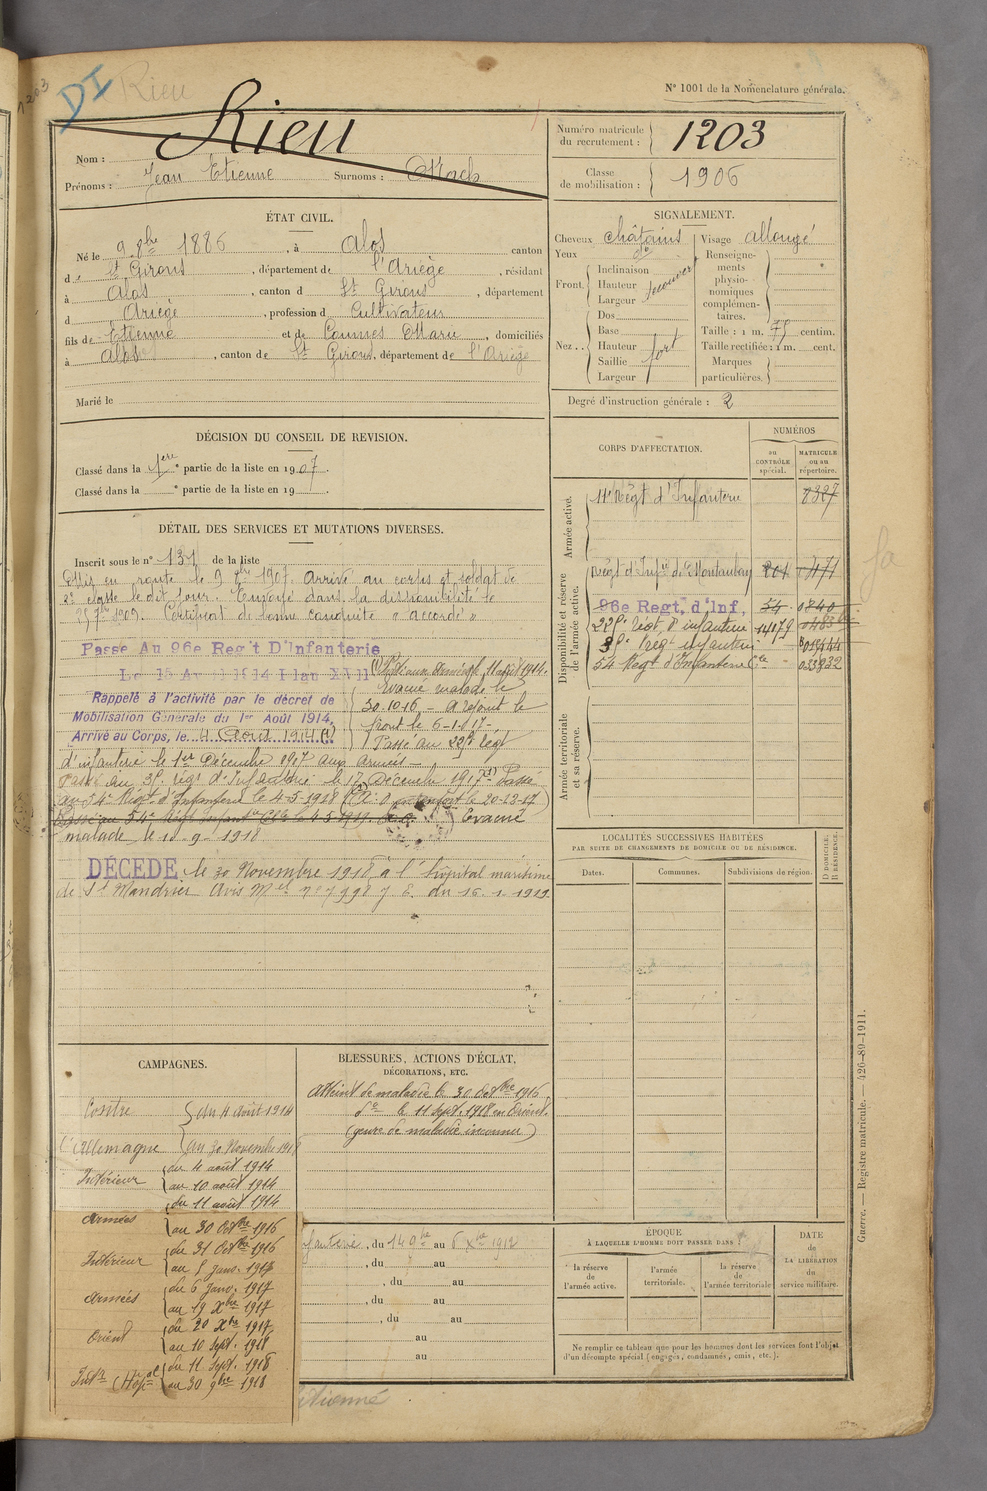 1203
DI
Rieu
N° 1001 de la Nomenclature générale.
Nom : Rieu
Prénoms : Jean Étienne Surnoms :
Numéro matricule du recrutement : 1203
Classe de mobilisation : 1906
ÉTAT CIVIL.
Né le 9 8bre 1886, à Alos canton
d St Girons, département de l'Ariège, résidant
à Alos, canton d St Girons, département
d Ariège, profession d Cultivateur
fils de Etienne et de Marie, domiciliés
à Alos, canton de St Girons, département de l'Ariège
Marié le
SIGNALEMENT.
Cheveux châtains
Yeux do
Front. Inclinaison
Hauteur
Largeur
découvert
Nez. Dos
Base
Hauteur
Saillie
Largeur
fort
Visage allongé
Renseignements physionomiques complémentaires.
Taille : 1 m. 75 centim.
Taille rectifiée : 1 m. cent.
Marques particulières.
Degré d'instruction générale : 2
DÉCISION DU CONSEIL DE REVISION.
Classé dans la 1ere partie de la liste en 1907.
Classé dans la e partie de la liste en 19 .
DÉTAIL DES SERVICES ET MUTATIONS DIVERSES.
Inscrit sous le n° 131 de la liste
Mis en route le 9 8bre 1907. Arrivé au corps et soldat de
2e classe le dit jour. Envoyé dans la disponibilité le
25 7bre 1909. Certificat de bonne conduite « accordé »
Passé Au 96e Reg't D'Infanterie
Le 15 Avril 1914 Plan XVII
Rappelé à l'activité par le décret de
Mobilisation Générale du 1er Août 1914,
Arrivé au Corps, le 4 Août 1914 (1)
(1) Parti aux Armées le 11 août 1914.
Evacué malade le
30.10.16 – a rejoint le
front le 6-1-17 –
Passé au 22e Régt
d'infanterie le 1er Décembre 1917 aux armées –
Passé au 3e régt d'Infanterie le 17 Décembre 1917 Passé
au 54e Régt d'Infanterie le 4-5-1918 (A. O le 20-12-17)
Passé au 54e Régt Infanterie Cle le 4-5-1918. Evacué
malade le 10-9-1918
DÉCÉDÉ le 30 Novembre 1918 à l'hôpital maritime
de St Mandrier Avis Mel n° 7998 du 16.1.1919.
CORPS D'AFFECTATION.
NUMÉROS
au CONTRÔLE spécial.
MATRICULE ou au répertoire.
Armée active.
11e Régt d'Infanterie 8327
Disponibilité et réserve de l'armée active.
Régt d'Infie de Montauban 801
96e Regt, d'Inf, 54 0840
22e Régt d'infanterie 14079
3e Régt infanterie
54 Régt d'Infanterie Cle 033932
Armée territoriale et sa réserve.
LOCALITÉS SUCCESSIVES HABITÉES
PAR SUITE DE CHANGEMENTS DE DOMICILE OU DE RÉSIDENCE.
Dates.
Communes.
Subdivisions de région.
D DOMICILE. R RÉSIDENCE.
CAMPAGNES.
Contre du 4 août 1914
l'Allemagne au 30 Novembre 1918
Intérieur du 4 août 1914
au 10 août 1914
Armées du 11 août 1914
au 30 Octbre 1916
Intérieur du 31 Octbre 1916
au 5 Janv. 1917
Armées du 6 Janv. 1917
au 19 Xbre 1917
Orient du 20 Xbre 1917
au 10 Sept. 1918
Intr (Hopal du 11 Sept. 1918
au 30 9bre 1918
BLESSURES, ACTIONS D'ÉCLAT,
DÉCORATIONS, ETC.
Atteint de maladie le 30 Octbre 1916
do le 11 Sept. 1918 en Orient.
(genre de maladie inconnu)
fanterie, du 14 9bre au 6 Xbre 1912
, du au
, du au
, du au
, du au
au
au
ÉPOQUE
À LAQUELLE L'HOMME DOIT PASSER DANS
la réserve de l'armée active.
l'armée territoriale.
la réserve de l'armée territoriale
DATE de LA LIBÉRATION du service militaire.
Ne remplir ce tableau que pour les hommes dont les services font l'objet
d'un décompte spécial (engagés, condamnés, omis, etc.).
Guerre. — Registre matricule. — 426-89-1911.